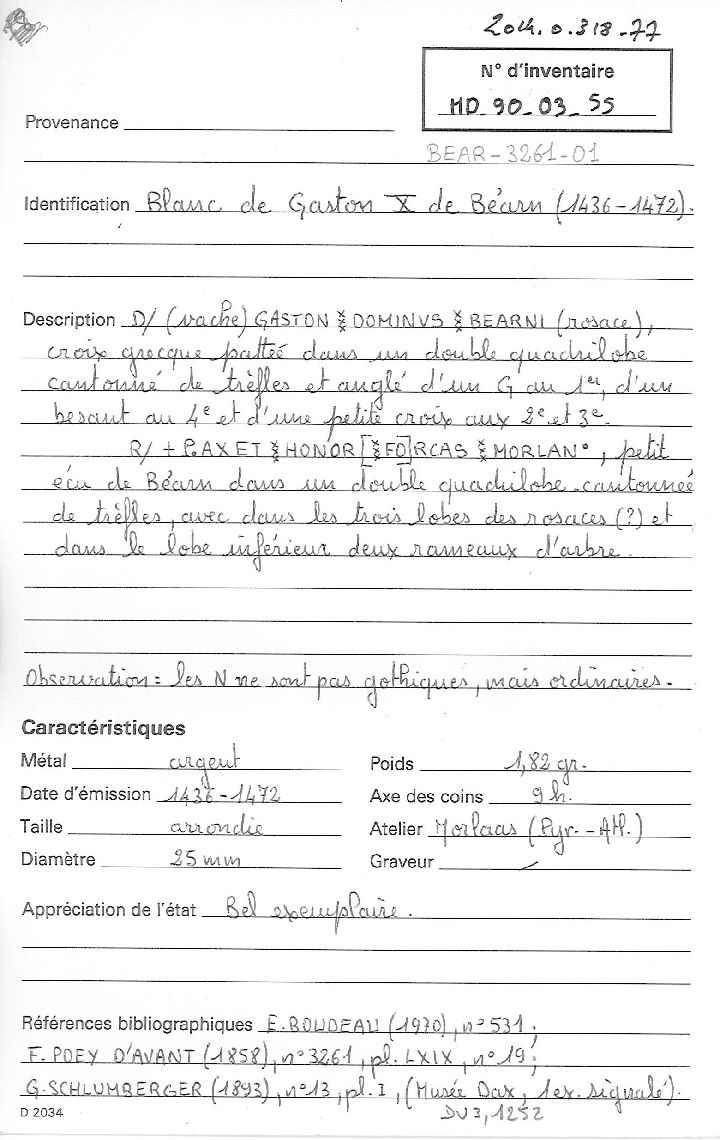 2014.0.318-77
N° d'inventaire
MD 90_03_55
Provenance
BEAR-3261-01
Identification Blanc de Gaston X de Béarn (1436-1472).
Description D/ (vache) GASTON ⁑ DOMINVS ⁑ BEARNI (rosace),
croix grecque pattée dans un double quadrilobe
cantonné de trèfles et anglé d'un G au 1er, d'un
besant au 4e et d'une petite croix aux 2e et 3e.
R/ + P.AX ET ⁑ HONOR [⁑ FO]RCAS ⁑ MORLAN°, petit
écu de Béarn dans un double quadrilobe cantonneé
de trèfles, avec dans les trois lobes des rosaces (?) et
dans le lobe inférieur deux rameaux d'arbre.
Observation: les N ne sont pas gothiques, mais ordinaires.
Caractéristiques
Métal argent Poids 1,82 gr.
Date d'émission 1436-1472 Axe des coins 9h.
Taille arrondie Atelier Morlaas (Pyr.-Atl.)
Diamètre 25 mm Graveur
Appréciation de l'état Bel exemplaire.
Références bibliographiques E. BOUDEAU (1970), n°531;
F. POEY D'AVANT (1858), n°3261, pl. LXIX, n°19;
G. SCHLUMBERGER (1893), n°13, pl. I, (Musée Dax, 1 ex. signalé).
D 2034 DU 3, 1252